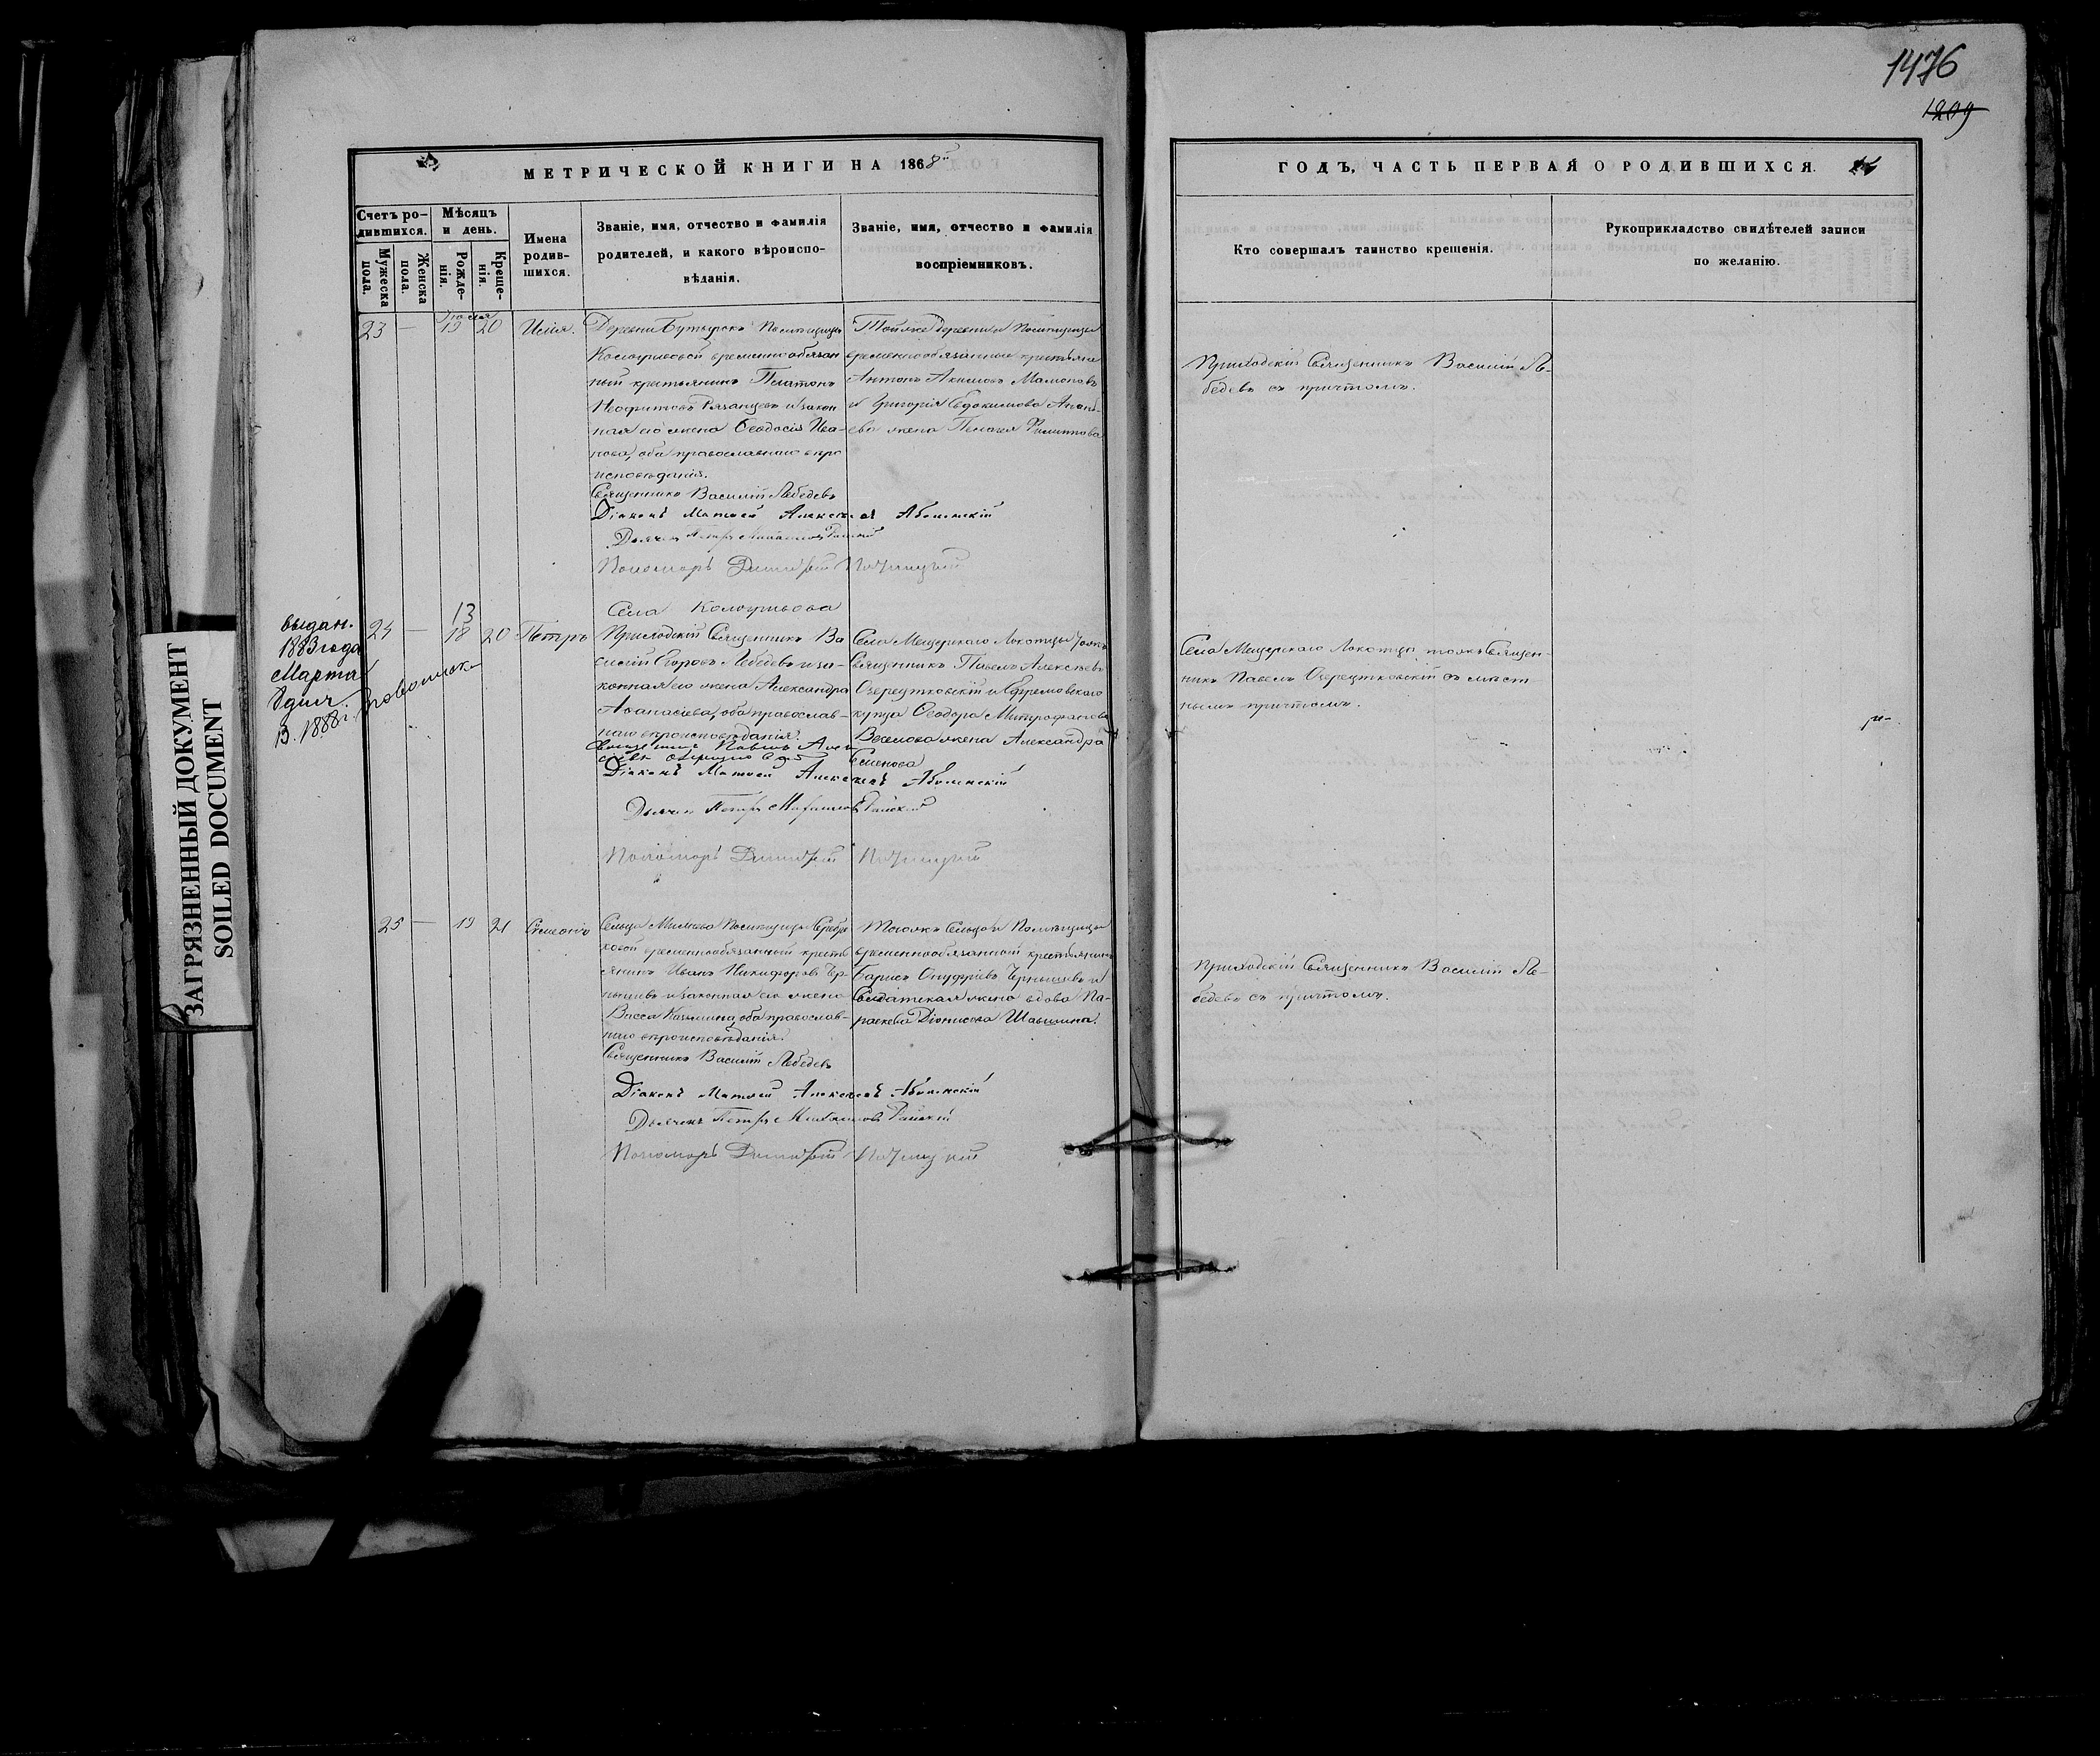 1476
1209
МЕТРИЧЕСКОЙ КНИГИ НА 1868й
ГОДЪ, ЧАСТЬ ПЕРВАЯ О РОДИВШИХСЯ.
Счетъ ро-
дившихся.
Мужеска
пола.
Женска
пола.
Мѣсяцъ
и день.
Рожде-
нія.
Креще-
нія.
Имена
родив-
шихся.
Званіе, имя, отчество и фамилія
родителей, и какого вѣроиспо-
вѣданія.
Званіе, имя, отчество и фамилія
воспріемниковъ.
Кто совершалъ таинство крещенія.
Рукоприкладство свидѣтелей записи
по желанію.
Іюля
23 — 19 20 Илія.
Деревни Бутырокъ Помѣщицы
Кологривовой временнообязан
ный крестьянинъ Платонъ
Неофитовъ Рязанцевъ и закон
ная его жена Ѳеодосія Ива-
нова, оба православнаго вѣро
исповѣданія.
Священникъ Василій Лебедевъ
Діаконъ Матвей Алексеевъ
Дьячекъ Петръ Михаиловъ Райскій
Пономарь Димитрій
Той же деревни и Помѣщицы
временнообязанные крестьяне
Антонъ Акимовъ Мамоновъ
и Григорія Евдокимова
жена Пелагея Филиппова
Приходскій Священникъ Василій Ле-
бедевъ съ причтомъ.
выдан.
1883 года
Марта
8 дня.
В. 1888 г.
Села Кологривова
13
24 — 18 20 Петръ
Приходскій Священникъ Ва
силій Егоровъ Лебедевъ и за-
конная его жена Александра
Аѳанасіева, оба православ-
наго вѣроисповѣданія.
Священникъ Павелъ Алек
сѣевъ
Діаконъ Матвей Алексеевъ
Дьячекъ Петръ Михаиловъ Райскій
Пономарь Димитрій
Села Мещерскаго Локотцы тожъ
Священникъ Павелъ Алексѣевъ
Озерецковскій и Ефремовскаго
купца Ѳеодора Митрофанова
Веселова жена Александра
Семенова
Села Мещерскаго Локотцы тожъ Священ-
никъ Павелъ Озерецковскій съ мѣст
нымъ причтомъ.
25 — 19 21 Симеонъ
Сельца Помѣщицы
временнообязанный кресть
янинъ Иванъ Никифоровъ Чер-
нышевъ и законная его жена
Васса Козьмина, оба православ-
наго вѣроисповѣданія.
Священникъ Василій Лебедевъ
Діаконъ Матвей Алексеевъ
Дьячекъ Петръ Михаиловъ Райскій
Пономарь Димитрій
Тогожъ Сельца и Помѣщицы
временнообязанный крестьянинъ
Борисъ Онуфріевъ Чернышевъ и
Солдатская жена вдова Па-
раскева Діонисова Шавшина.
Приходскій Священникъ Василій Ле-
бедевъ съ причтомъ.
ЗАГРЯЗНЕННЫЙ ДОКУМЕНТ
SOILED DOCUMENT